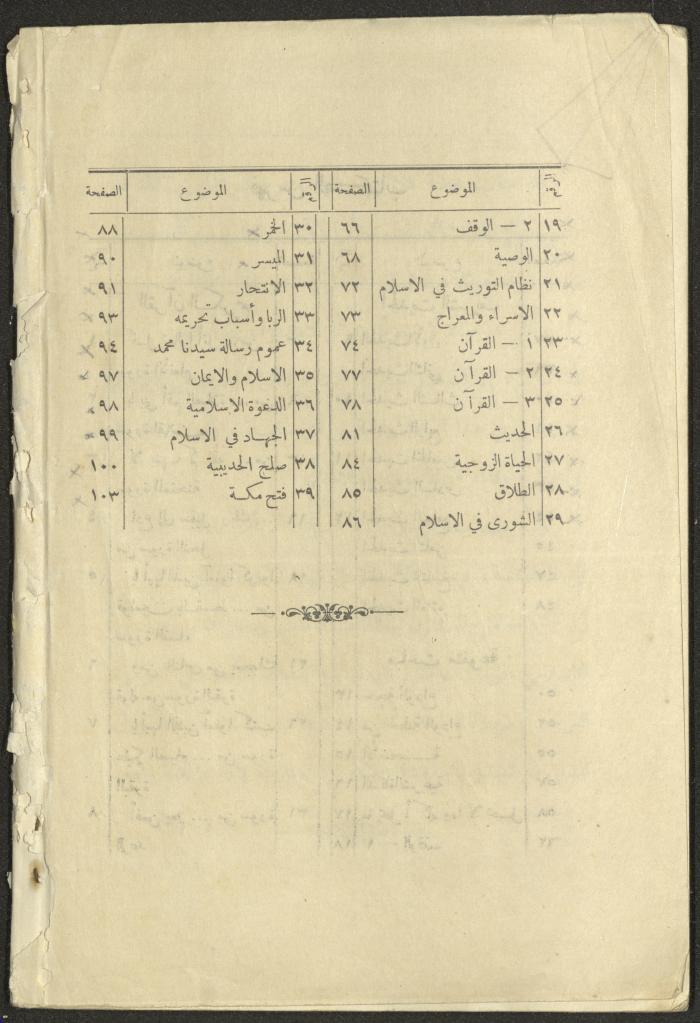 الرقم الموضوع الصفحة
١٩ ٢ — الوقف ٦٦
٢٠ الوصية ٦٨
٢١ نظام التوريث في الاسلام ٧٢
٢٢ الاسراء والمعراج ٧٣
٢٣ ١ — القرآن ٧٤
٢٤ ٢ — القرآن ٧٧
٢٥ ٣ — القرآن ٧٨
٢٦ الحديث ٨١
٢٧ الحياة الزوجية ٨٤
٢٨ الطلاق ٨٥
٢٩ الشورى في الاسلام ٨٦
الرقم الموضوع الصفحة
٣٠ الخمر ٨٨
٣١ الميسر ٩٠
٣٢ الانتحار ٩١
٣٣ الربا وأسباب تحريمه ٩٣
٣٤ عموم رسالة سيدنا محمد ٩٤
٣٥ الاسلام والايمان ٩٧
٣٦ الدعوة الاسلامية ٩٨
٣٧ الجهاد في الاسلام ٩٩
٣٨ صلح الحديبية ١٠٠
٣٩ فتح مكة ١٠٣